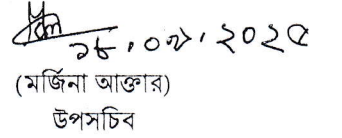 ১৮.০৯.২০২৫
(মর্জিনা আক্তার)
উপসচিব